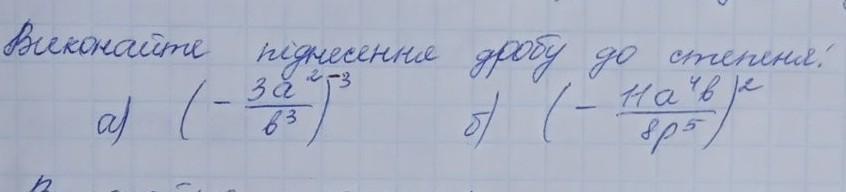 Виконайте піднесення дробу до степеня:
а) (- 3a²/b³)⁻³ б) (- 11a⁴b/8p⁵)²